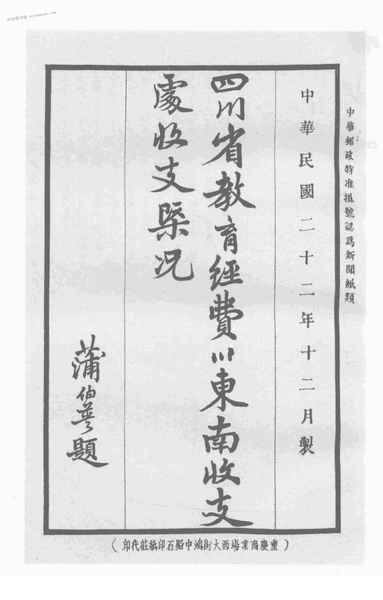 中華郵政特准掛號認爲新聞紙類
中華民國二十二年十二月製
四川省教育經費川東南收支
處收支槩況
蒲伯英題
（重慶商業場西大街鴻中船石印紙莊代印）